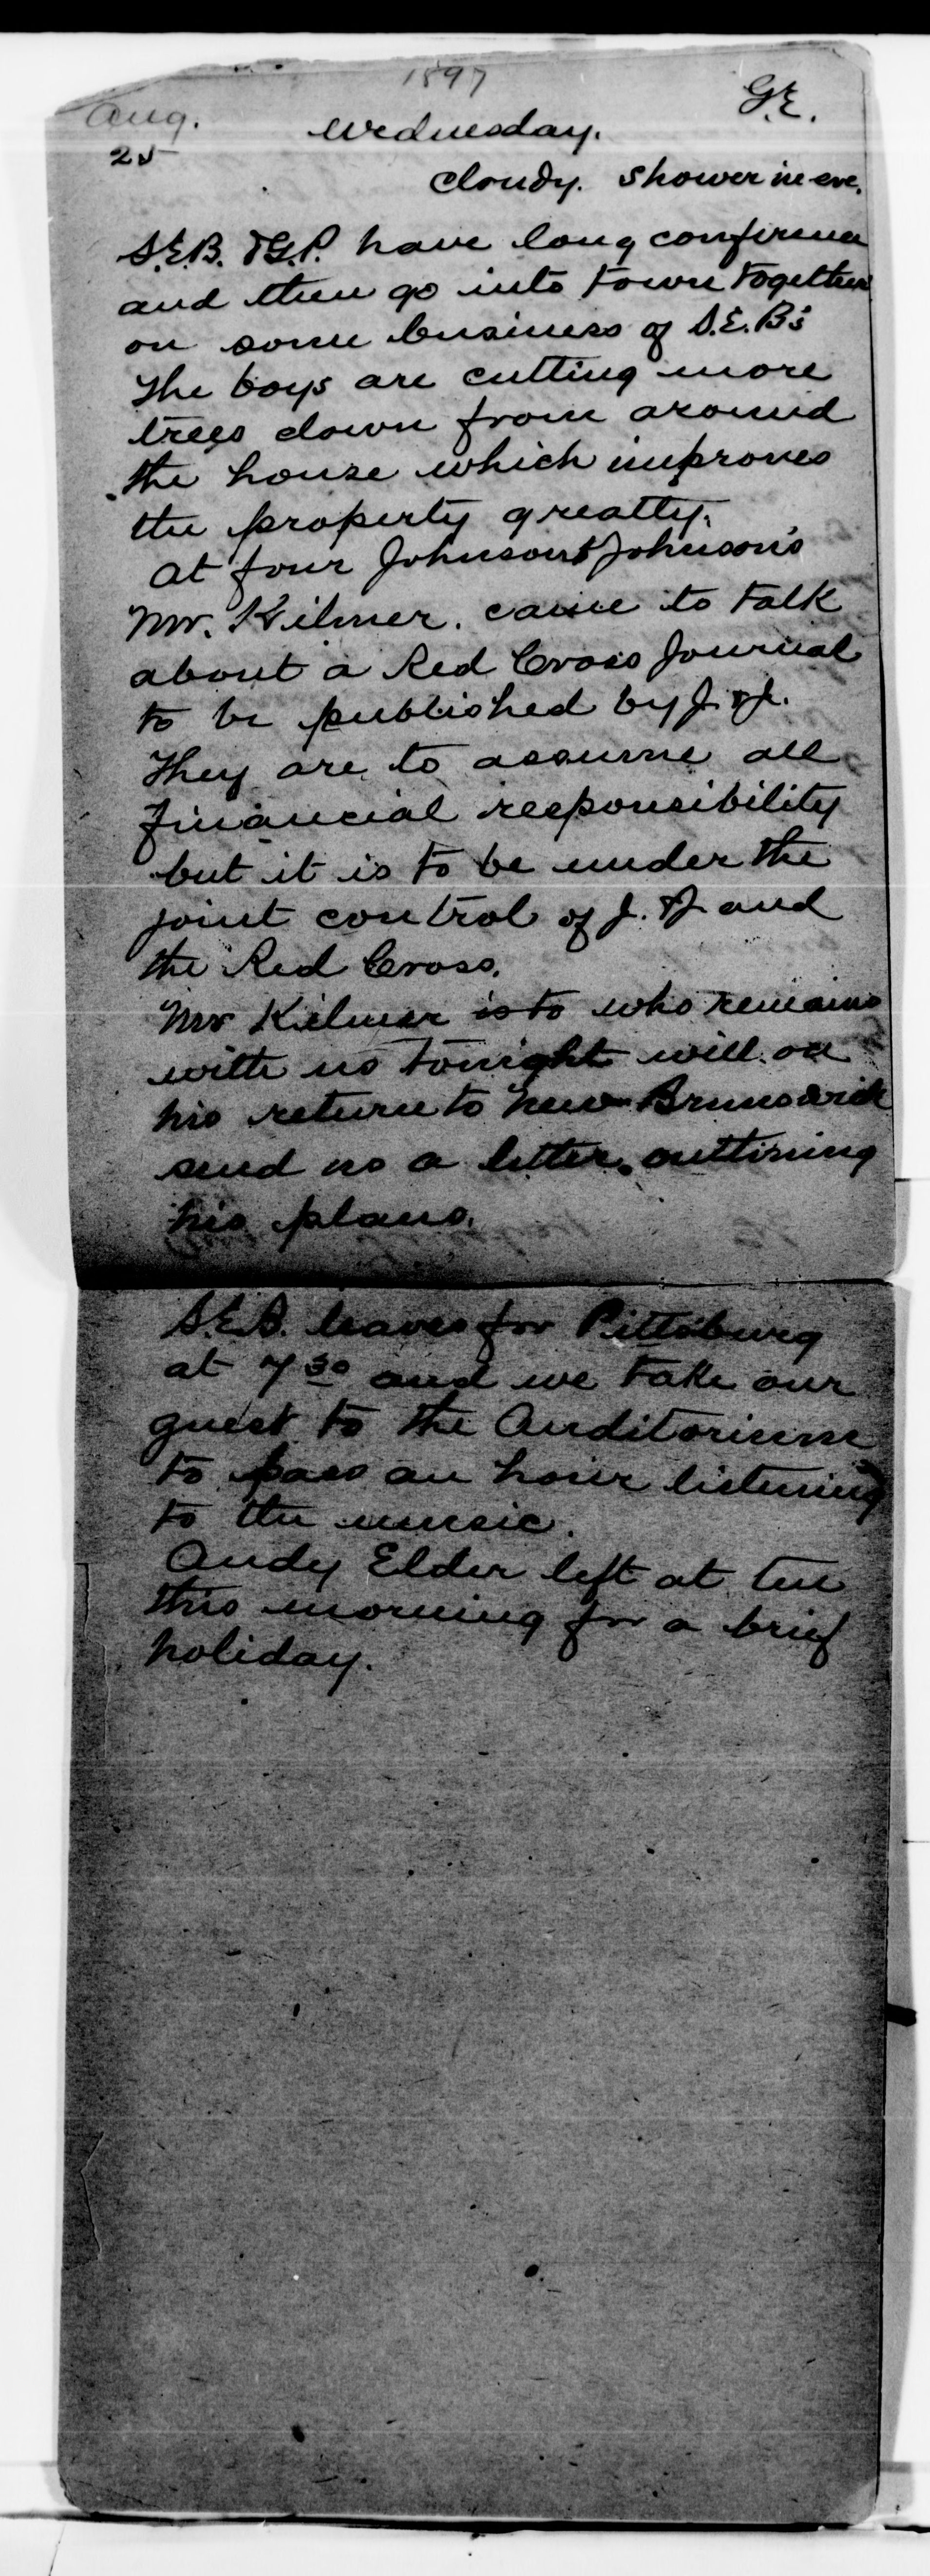 1897
G.E.
Aug.
25
Wednesday.
Cloudy. Shower in eve.
S.E.B. & G.P. have long
and then go into town together
on some business of S.E.B's
The boys are cutting more
trees down from around
the house which improves
the property greatly.
At four Johnson & Johnson's
Mr. Kilmer. came to talk
about a Red Cross Journal
to be published by J. & J.
They are to assume all
financial responsibility
but it is to be under the
joint control of J. & J. and
the Red Cross.
Mr Kilmer is to who remains
with us tonight will on
his return to New Brunswick
send us a letter outlining
his plans.
S.E.B. leaves for Pittsburg
at 7 30 and we take our
guest to the Auditorium
to pass an hour listening
to the music.
Andy Elder left at ten
this morning for a brief
holiday.